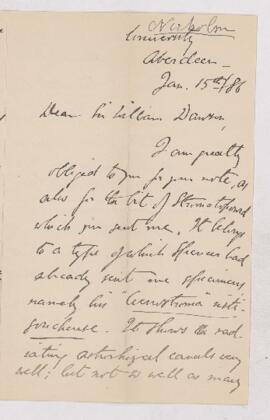 Nicholson
University
Aberdeen
Jan. 15th/86
Dear Sir William Dawson,
I am greatly
obliged to you for your note, as
also for the bit of Stromatoporoid
which you sent me. It belongs
to a type of which Spencer had
already sent me specimens
namely his Coenostroma
. It shows the rad-
iating astrorhizal canals very
well; but not so well as many